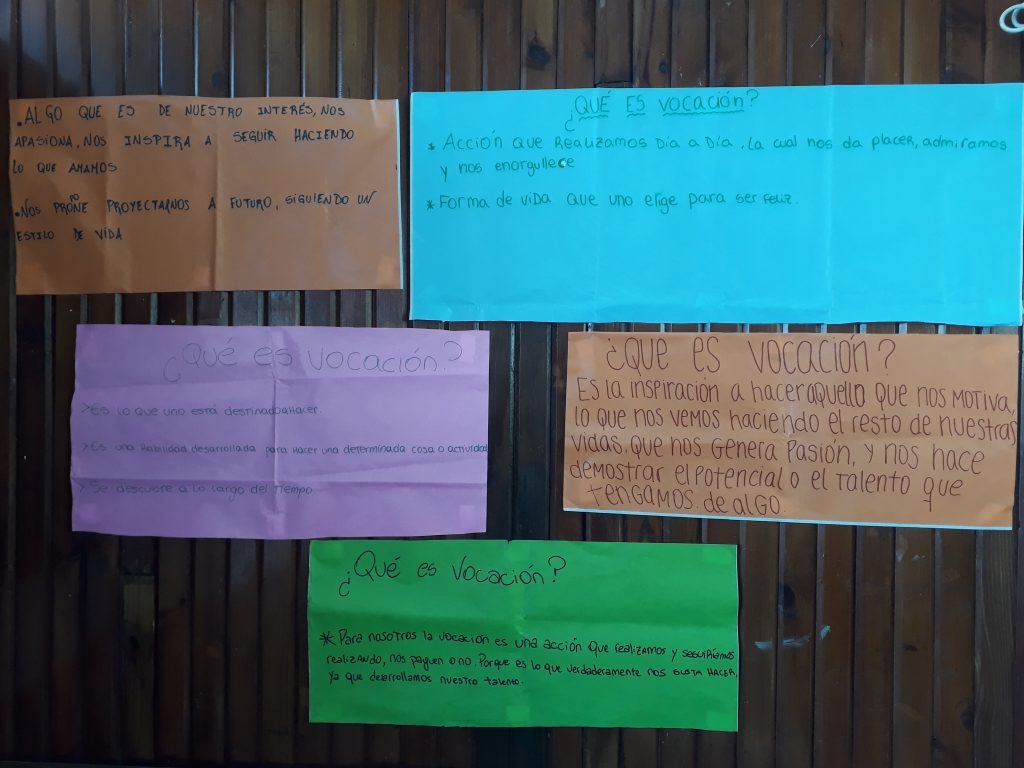 .ALGO QUE ES DE NUESTRO INTERÉS, NOS
APASIONA, NOS INSPIRA A SEGUIR HACIENDO
LO QUE AMAMOS
.NOS PROPONE PROYECTARNOS A FUTURO, SIGUIENDO UN
ESTILO DE VIDA
¿QUÉ ES VOCACIÓN?
* Acción que Realizamos Día a Día. La cual nos da placer, admiramos
y nos enorgullece
* Forma de vida que uno elige para ser feliz.
¿Qué es vocación?
>Es lo que uno está destinado a Hacer.
>Es una Habilidad desarrollada para Hacer una determinada cosa o actividad
> Se descubre a lo largo del Tiempo
¿QUE ES VOCACIÓN?
Es la inspiración a hacer aquello que nos motiva,
lo que nos vemos haciendo el resto de nuestras
vidas, que nos genera pasión, y nos hace
demostrar el potencial o el talento que
tengamos de algo.
¿Qué es Vocación?
* Para nosotros la vocación es una acción que realizamos y seguiríamos
realizando, nos paguen o no. Porque es lo que verdaderamente nos GUSTA HACER,
ya que desarrollamos nuestro talento.